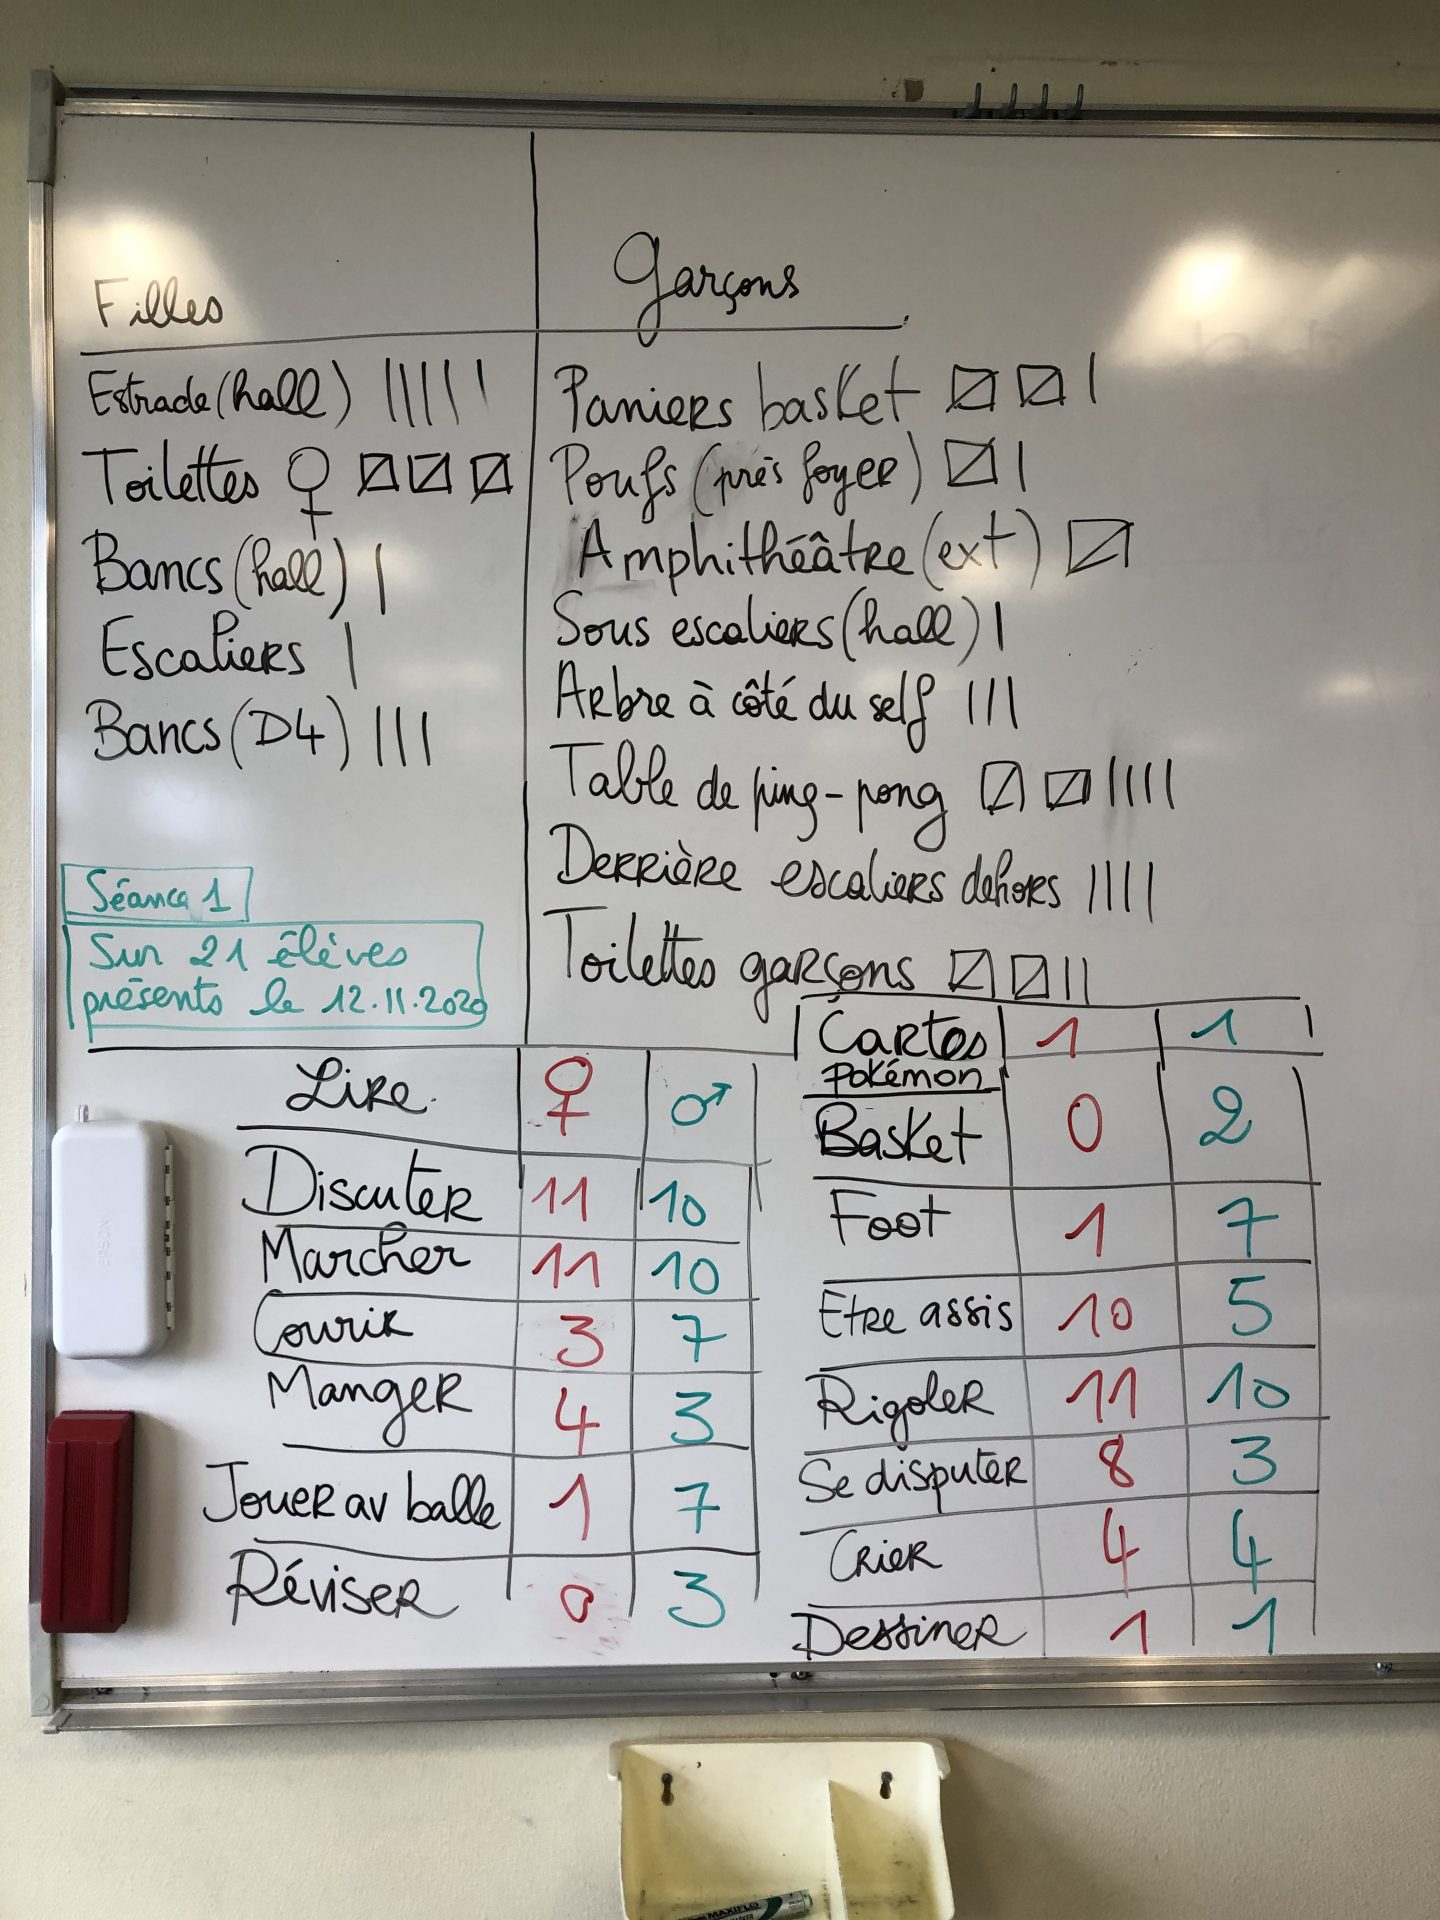 Filles
Garçons
Estrade (hall) |||||
Toilettes ♀
Bancs (hall) |
Escaliers |
Bancs (D4) |||
Paniers basket |
Poufs (près foyer) |
Amphithéâtre (ext)
Sous escaliers (hall) |
Arbre à côté du self |||
Table de ping-pong ||||
Derrière escaliers dehors ||||
Toilettes garçons ||
Séance 1
Sur 21 élèves
présents le 12.11.2020
Lire ♀ ♂
Discuter 11 10
Marcher 11 10
Courir 3 7
Manger 4 3
Jouer av balle 1 7
Réviser 0 3
Cartes 1 1
pokémon
Basket 0 2
Foot 1 7
Etre assis 10 5
Rigoler 11 10
Se disputer 8 3
Crier 4 4
Dessiner 1 1
EPSON
MAXIFLO